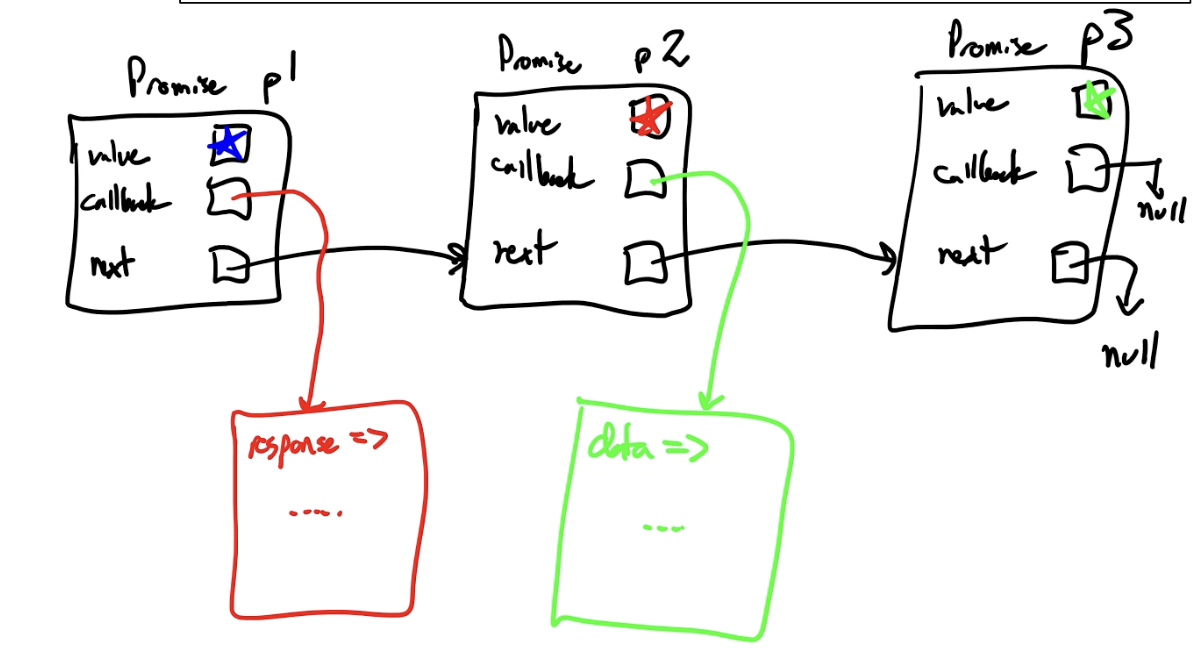 Promise p1
value
callback
next
Promise p2
value
callback
next
Promise p3
value
callback
null
next
null
response =>
.....
data =>
---